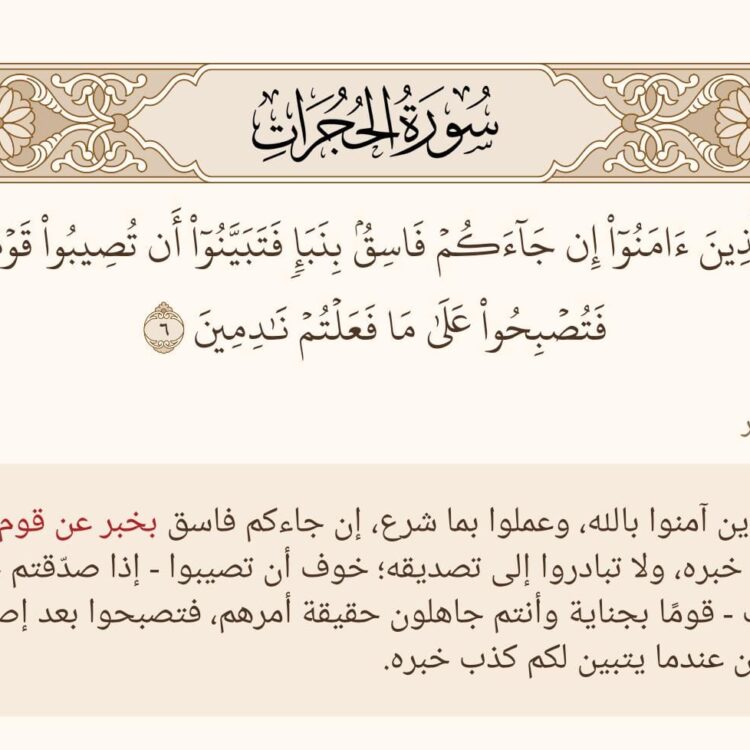 سُورَةُ الحُجُرَاتِ
ذِينَ ءَامَنُوٓاْ إِن جَآءَكُمۡ فَاسِقُۢ بِنَبَإٖ فَتَبَيَّنُوٓاْ أَن تُصِيبُواْ قَوۡ
فَتُصۡبِحُواْ عَلَىٰ مَا فَعَلۡتُمۡ نَٰدِمِينَ ٦
ين آمنوا بالله، وعملوا بما شرع، إن جاءكم فاسق بخبر عن قوم
خبره، ولا تبادروا إلى تصديقه؛ خوف أن تصيبوا - إذا صدّقتم
- قومًا بجناية وأنتم جاهلون حقيقة أمرهم، فتصبحوا بعد إص
ن عندما يتبين لكم كذب خبره.